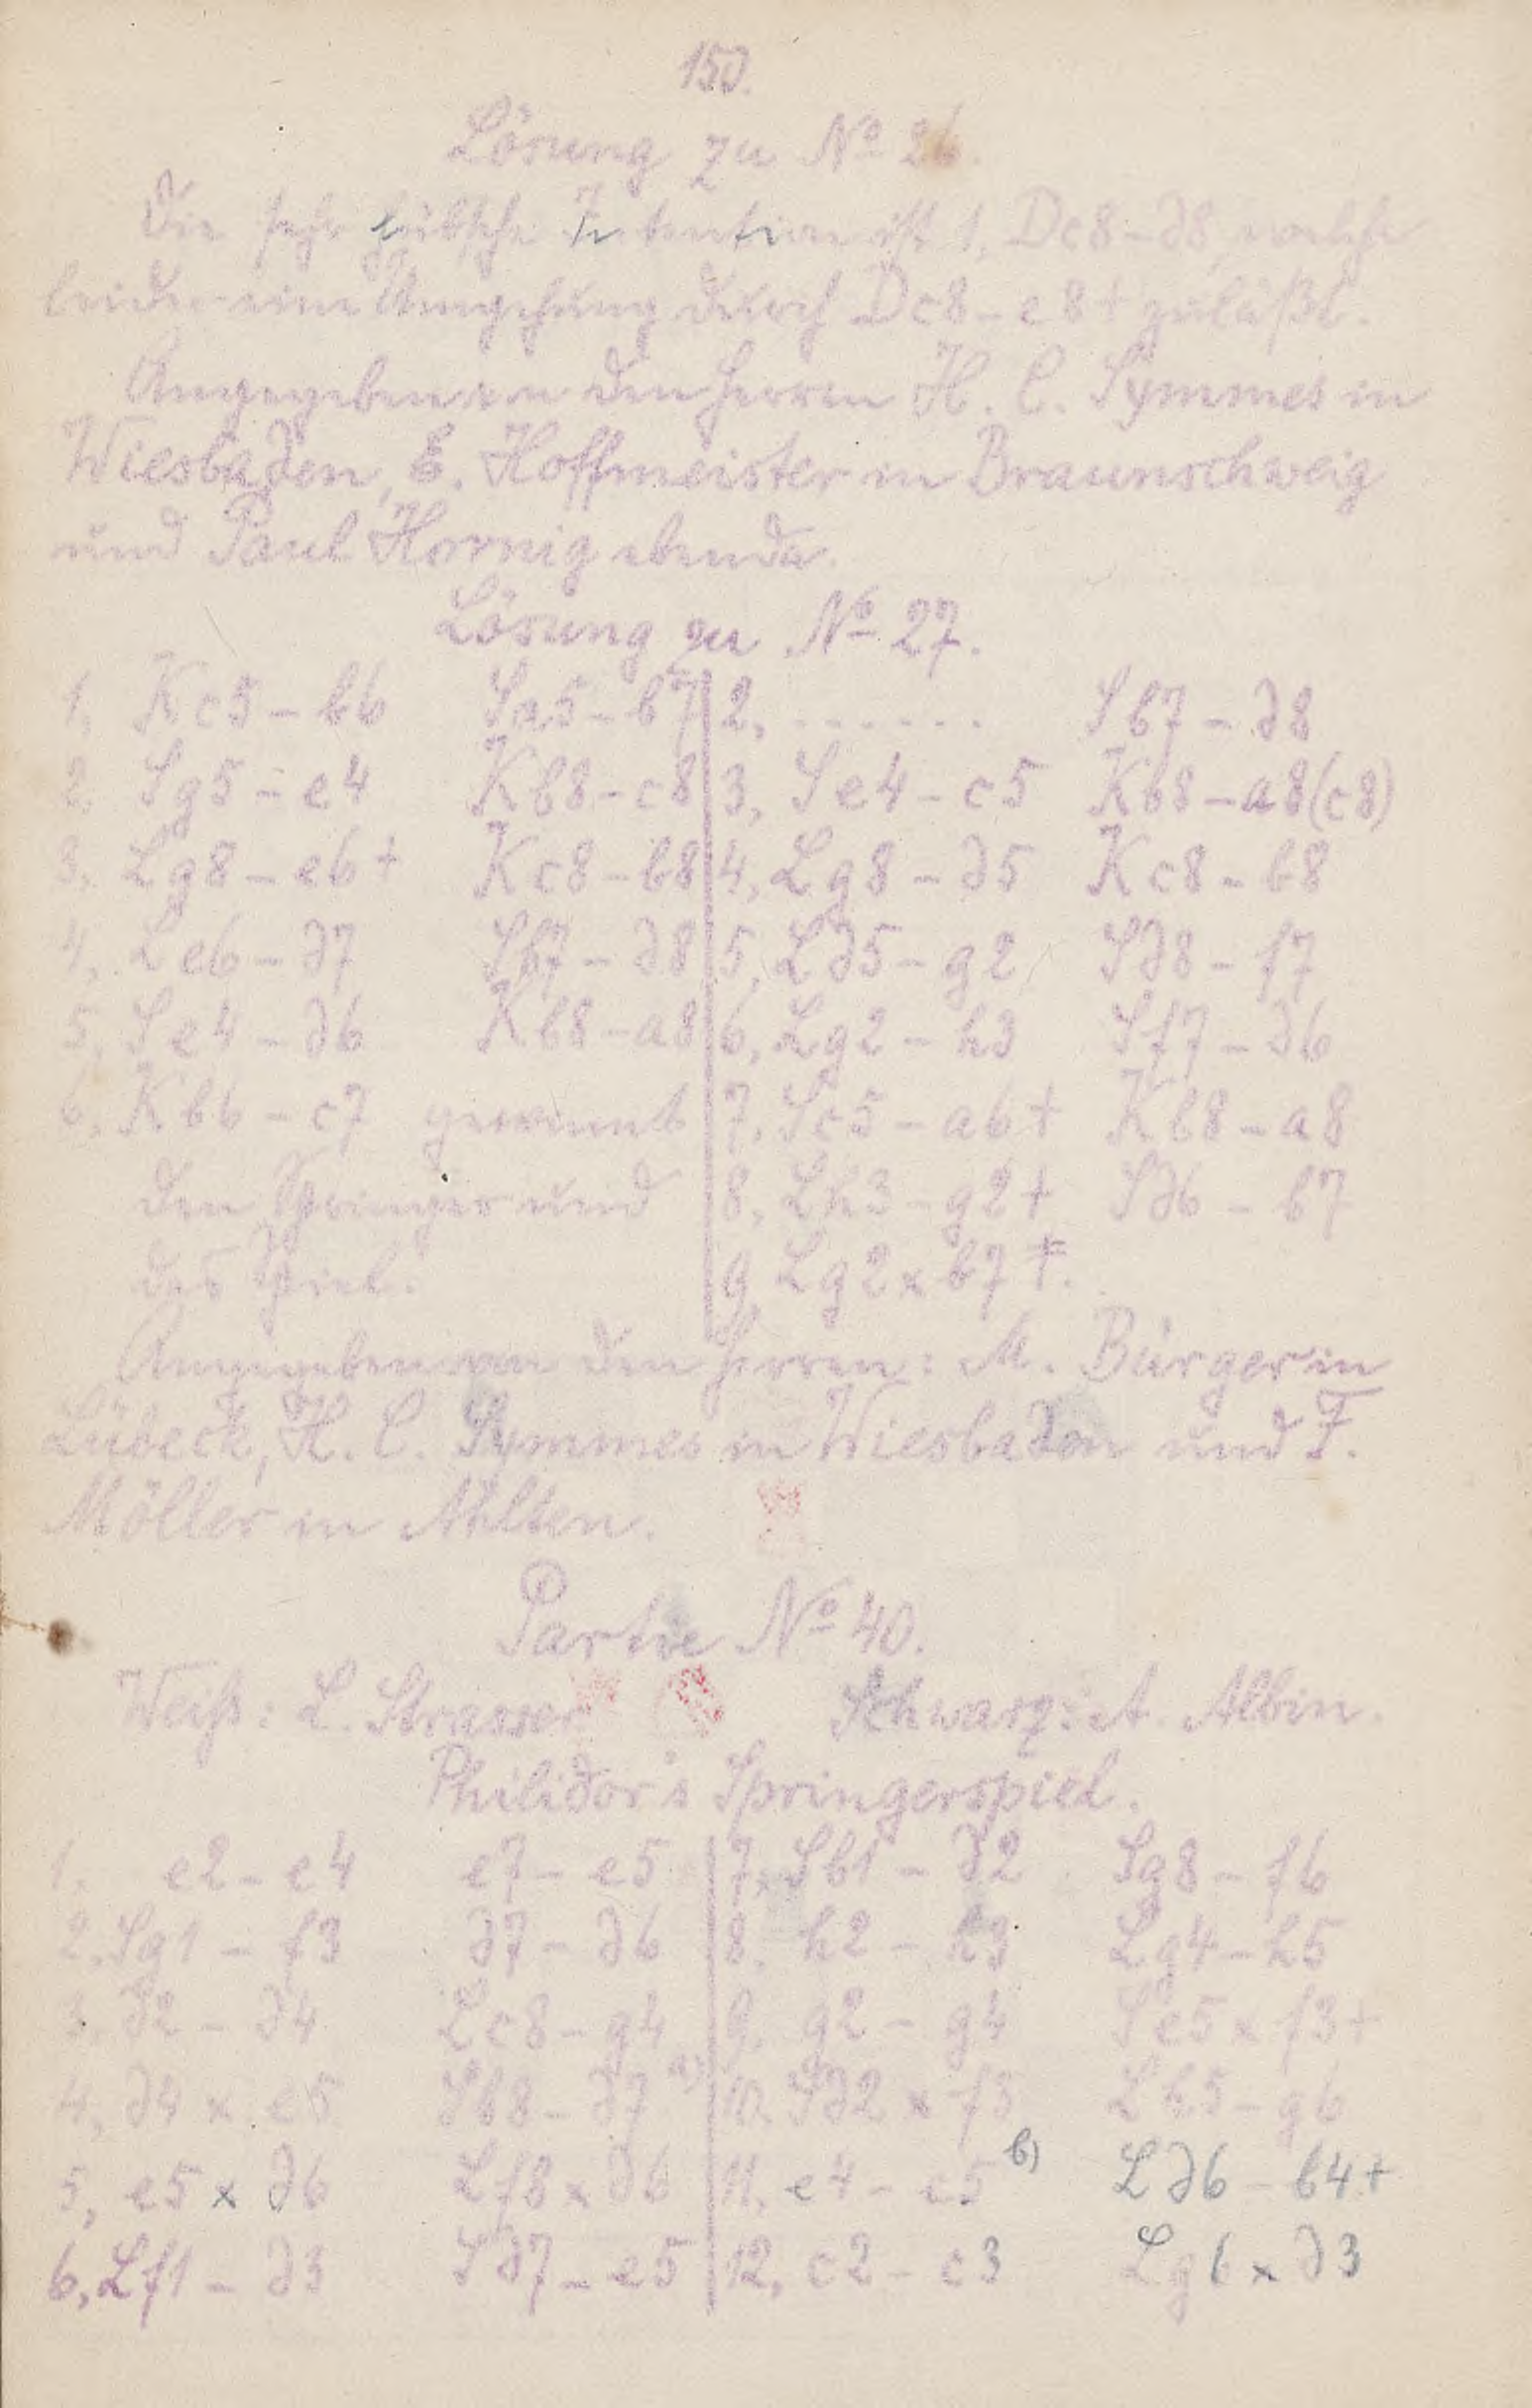 150.
Lösung zu No 26.
Die sehr hübsche Intention ist 1, Dc8-d8, welche
leider eine Umgehung durch Dc8-e8+ zuläßt.
Angegeben von den Herren H. C. Symmes in
Wiesbaden, E. Hoffmeister in Braunschweig
und Paul Hornig ebenda.
Lösung zu No 27.
1, Kc5-b6 Sa5-b7 2, ...... Sb7-d8
2 Sg5-e4 Kb8-c8 3, Se4-c5 Kb8-a8(c8)
3, Lg8-e6+ Kc8-b8 4, Lg8-d5 Kc8-b8
4, Le6-d7 Sb7-d8 5, Ld5-g2 Sd8-f7
5, Se4-d6 Kb8-a8 6, Lg2-h3 Sf7-d6
6, Kb6-c7 gewinnt 7, Sc5-a6+ Kb8-a8
den Springer und 8, Lh3-g2+ Sd6-b7
das Spiel. 9, Lg2xb7‡.
Angegeben von den Herren: M. Bürger in
Lübeck, H. C. Symmes in Wiesbaden und F.
Möller in Ahlten.
Partie No 40.
Weiß: L. Strasser Schwarz: A. Albin.
Philidor's Springerspiel.
1. e2-e4 e7-e5 7, Sb1-d2 Sg8-f6
2. Sg1-f3 d7-d6 8. h2-h3 Lg4-h5
3, d2-d4 Lc8-g4 9, g2-g4 Se5xf3+
4, d4xe5 Sb8-d7 a) 10. Sd2xf3 Lh5-g6
5, e5xd6 Lf8xd6 11, e4-e5 b) Ld6-b4+
6, Lf1-d3 Sd7-e5 12, c2-c3 Lg6xd3